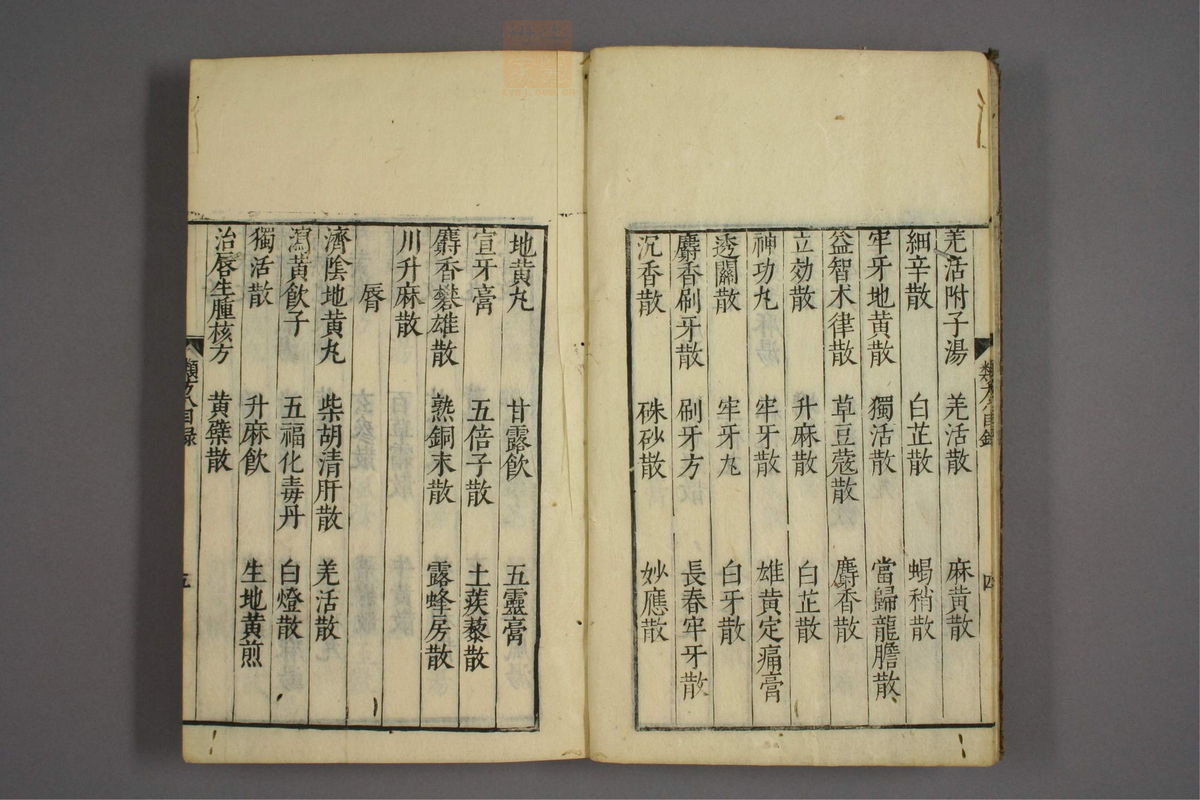 羌活附子湯　羌活散　麻黄散
細辛散　白芷散　蝎稍散
牢牙地黄散　獨活散　當歸龍膽散
益智木律散　草豆蔻散　麝香散
立効散　升麻散　白芷散
神功丸　牢牙散　雄黄定痛膏
透關散　牢牙丸　白牙散
麝香刷牙散　刷牙方　長春牢牙散
沉香散　硃砂散　妙應散
類方八目録　四
地黄丸　甘露飲　五靈膏
宣牙膏　五倍子散　土蒺藜散
麝香礬雄散　熟銅末散　露蜂房散
川升麻散
唇
濟陰地黄丸　柴胡清肝散　羌活散
瀉黄飲子　五福化毒丹　白燈散
獨活散　升麻飲　生地黄煎
治唇生腫核方　黄蘗散
類方八目録　五